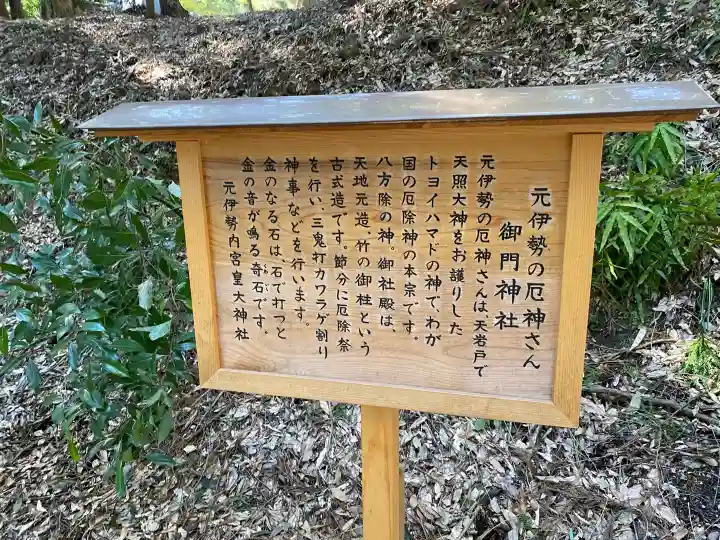 元伊勢の厄神さん
御門神社
元伊勢の厄神さんは、天岩戸で
天照大神をお護りした
トヨイハマドの神で、わが
国の厄除神の本宗です。
八方除の神。御社殿は、
天地元造、竹の御柱という
古式造です。節分に厄除祭
を行い、三鬼打カワラケ割り
神事などを行います。
金のなる石は、石で打つと
金の音が鳴る奇石です。
元伊勢内宮皇大神社